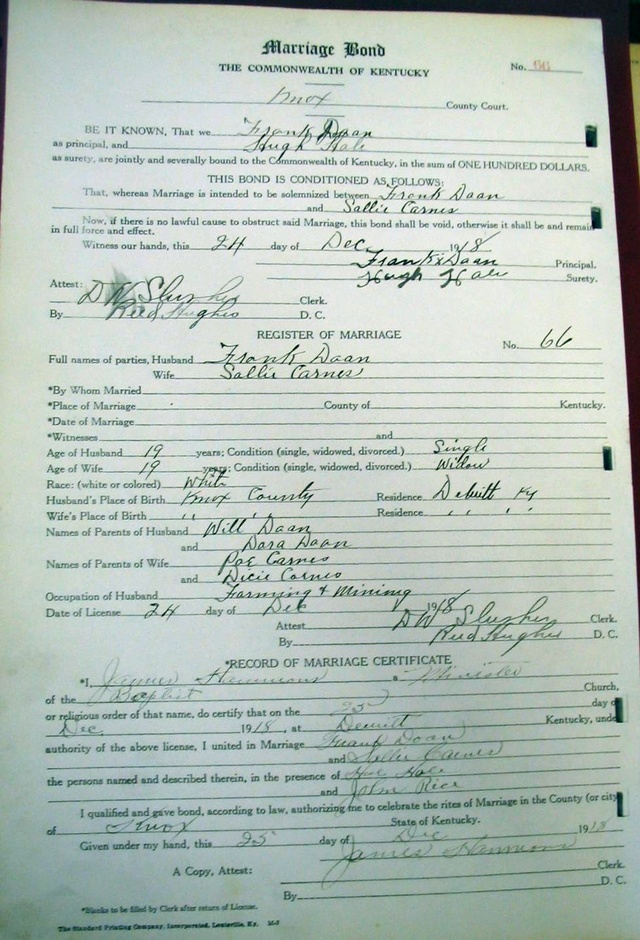 Marriage Bond
THE COMMONWEALTH OF KENTUCKY
No. 66
Knox County Court.
BE IT KNOWN, That we Frank Doan
as principal, and Hugh Hale
as surety, are jointly and severally bound to the Commonwealth of Kentucky, in the sum of ONE HUNDRED DOLLARS.
THIS BOND IS CONDITIONED AS FOLLOWS:
That, whereas Marriage is intended to be solemnized between Frank Doan
and Sallie Carnes
Now, if there is no lawful cause to obstruct said Marriage, this bond shall be void, otherwise it shall be and remain
in full force and effect.
Witness our hands, this 24 day of Dec 1918
Frank x Doan Principal.
Hugh Hale Surety.
Attest:
D W Slusher Clerk.
By Reed Hughes D. C.
REGISTER OF MARRIAGE
No. 66
Full names of parties, Husband Frank Doan
Wife Sallie Carnes
*By Whom Married
*Place of Marriage County of Kentucky.
*Date of Marriage
*Witnesses and
Age of Husband 19 years; Condition (single, widowed, divorced.) Single
Age of Wife 19 years; Condition (single, widowed, divorced.) Widow
Race: (white or colored) White
Husband's Place of Birth Knox County Residence Dewitt Ky
Wife's Place of Birth " " Residence " "
Names of Parents of Husband Will Doan
and Dora Doan
Names of Parents of Wife Poe Carnes
and Dicie Carnes
Occupation of Husband Farming & Mining
Date of License 24 day of Dec 1918
Attest D W Slusher Clerk.
By Reed Hughes D. C.
*RECORD OF MARRIAGE CERTIFICATE
*I, James Hammons a Minister
of the Baptist Church,
or religious order of that name, do certify that on the 25 day of
Dec 1918, at Dewitt Kentucky, under
authority of the above license, I united in Marriage Frank Doan
and Sallie Carnes
the persons named and described therein, in the presence of Hale
and John Rice
I qualified and gave bond, according to law, authorizing me to celebrate the rites of Marriage in the County (or city)
of Knox State of Kentucky.
Given under my hand, this 25 day of Dec 1918
James Hammons
A Copy, Attest: Clerk.
By D. C.
*Blanks to be filled by Clerk after return of License.
The Standard Printing Company, Incorporated, Louisville, Ky.